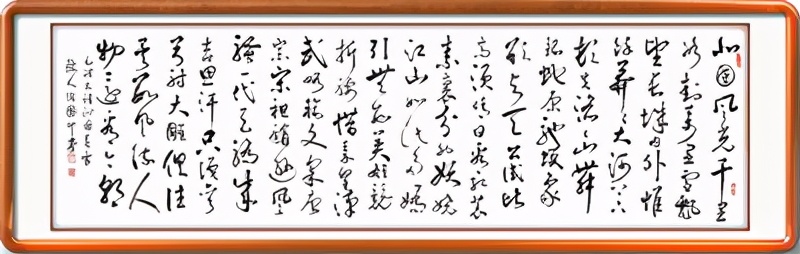 北国风光千里
冰封万里雪飘
望长城内外惟
馀莽莽大河上下
顿失滔滔山舞
银蛇原驰象
欲与天公试比
高须晴日看红装
素裹分外妖娆
江山如此多娇
引无数英雄竞
折腰惜秦皇汉
武略输文采唐
宗宋祖稍逊风
骚一代天骄成
吉思汗只识弯
弓射大雕俱往
矣数风流人
物还看今朝